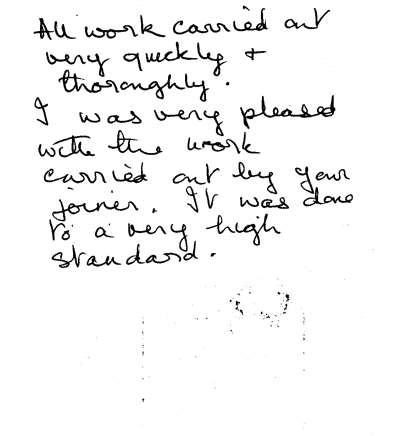 All work carried out
very quickly +
thoroughly.
I was very pleased
with the work
carried out by your
joiner. It was done
to a very high
standard.